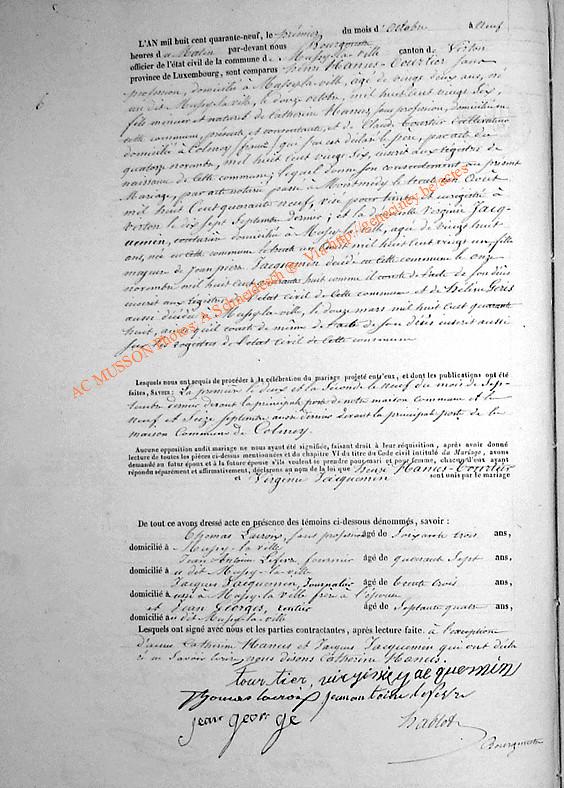 L'AN mil huit cent quarante-neuf, le premier du mois d'octobre à neuf
heures du matin par-devant nous Bourgmestre
officier de l'état civil de la commune de Mussy-la-ville canton de Virton
province de Luxembourg, sont comparus henri Hanus-Courtier sans
profession, domicilié à Mussy-la-ville, âgé de vingt deux ans, né
au dit Mussy-la-ville, le douze octobre, mil huit cent vingt six,
fils mineur et naturel de Catherine Hanus, sans profession, domiciliée en
cette commune, présente et consentante, et de Claude Courtier Cultivateur
domicilié à Colmey
quatorze novembre, mil huit cent vingt six, inscrit aux registres de
naissance de cette commune; lequel donne son consentement au présent
Mariage, par acte notarié passé à Montmédy le trente un Août
mil huit Cent quarante neuf, vu pour timbre et enregistré à
Virton le dix sept Septembre dernier; et la demoiselle Virginie Jacq-
uemin, couturière domiciliée à Mussy-la-ville, âgée de vingt huit
ans, née en cette commune le trente un Août mil huit cent vingt un fille
majeure de Jean pierre Jacquemin décédé en cette commune le onze
novembre mil huit cent quarante huit comme il conste de l'acte de son décès
inscrit aux registres de l'état civil de cette commune et de hélène Goris
aussi décédée à Mussy-la-ville, le douze mars mil huit cent quarante
huit, ainsi qu'il conste de même de l'acte de son décès inscrit aussi
sur les registres de l'état civil de cette commune
AC MUSSON Photos A Schmeideach @ Via http://geneciney.be/actes
Lesquels nous ont acquis de procéder à la célébration du mariage projeté entr'eux, et dont les publications ont été
faites, SAVOIR: La première le deux et la Seconde le neuf du mois de Sep-
tembre dernier devant la principale porte de notre maison commune et le
neuf et Seize Septembre aussi dernier devant la principale porte de la
maison Commune de Colmey.
Aucune opposition audit mariage ne nous ayant été signifiée, faisant droit à leur réquisition, après avoir donné
lecture de toutes les pièces ci-dessus mentionnées et du chapitre VI du titre du Code civil intitulé du Mariage, avons
demandé au futur époux et à la future épouse s'ils veulent se prendre pour mari et pour femme, chacun d'eux ayant
répondu séparément et affirmativement, déclarons au nom de la loi que henri Hanus-Courtier
et Virginie Jacquemin sont unis par le mariage
De tout ce avons dressé acte en présence des témoins ci-dessous dénommés, savoir:
Thomas Lacroix, sans profession âgé de Soixante trois ans,
domicilié à Mussy-la-ville
Jean Antoine Lefèvre, fournier âgé de quarante Sept ans,
domicilié à u dit Mussy-la-ville
Jacques Jacquemin, Journalier âgé de trente trois ans,
domicilié à ussi à Mussy-la-ville frère à l'épouse
et Jean Georges, rentier âgé de Septante quatre ans,
domicilié au dit Mussy-la-ville
Lesquels ont signé avec nous et les parties contractantes, après lecture faite. à l'exception
d'icelle Catherine Hanus et Jacques Jacquemin qui ont décla-
ré ne Savoir écrire, nous disons Catherine Hanus.
tourtier, virginie jacquemin
thomas lacroix jean antoine lefevre
jean george hablot
Bourgmestre